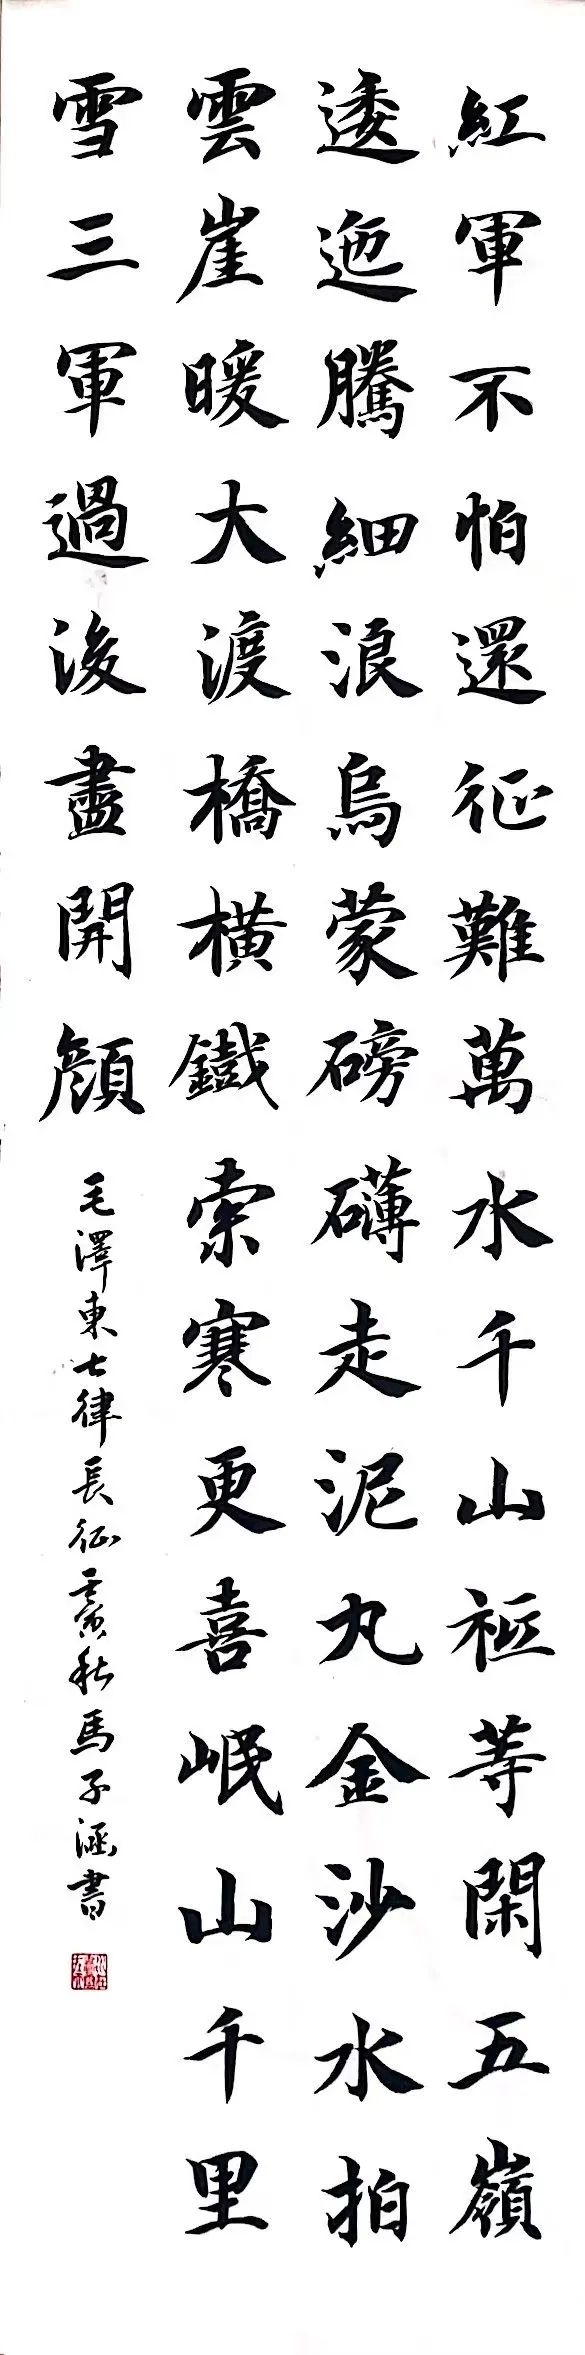 紅軍不怕還征難萬水千山祗等閑五嶺
逶迤騰細浪烏蒙磅礴走泥丸金沙水拍
雲崖暖大渡橋橫鐵索寒更喜岷山千里
雪三軍過後盡開顏
毛澤東七律長征壬寅秋馬子涵書